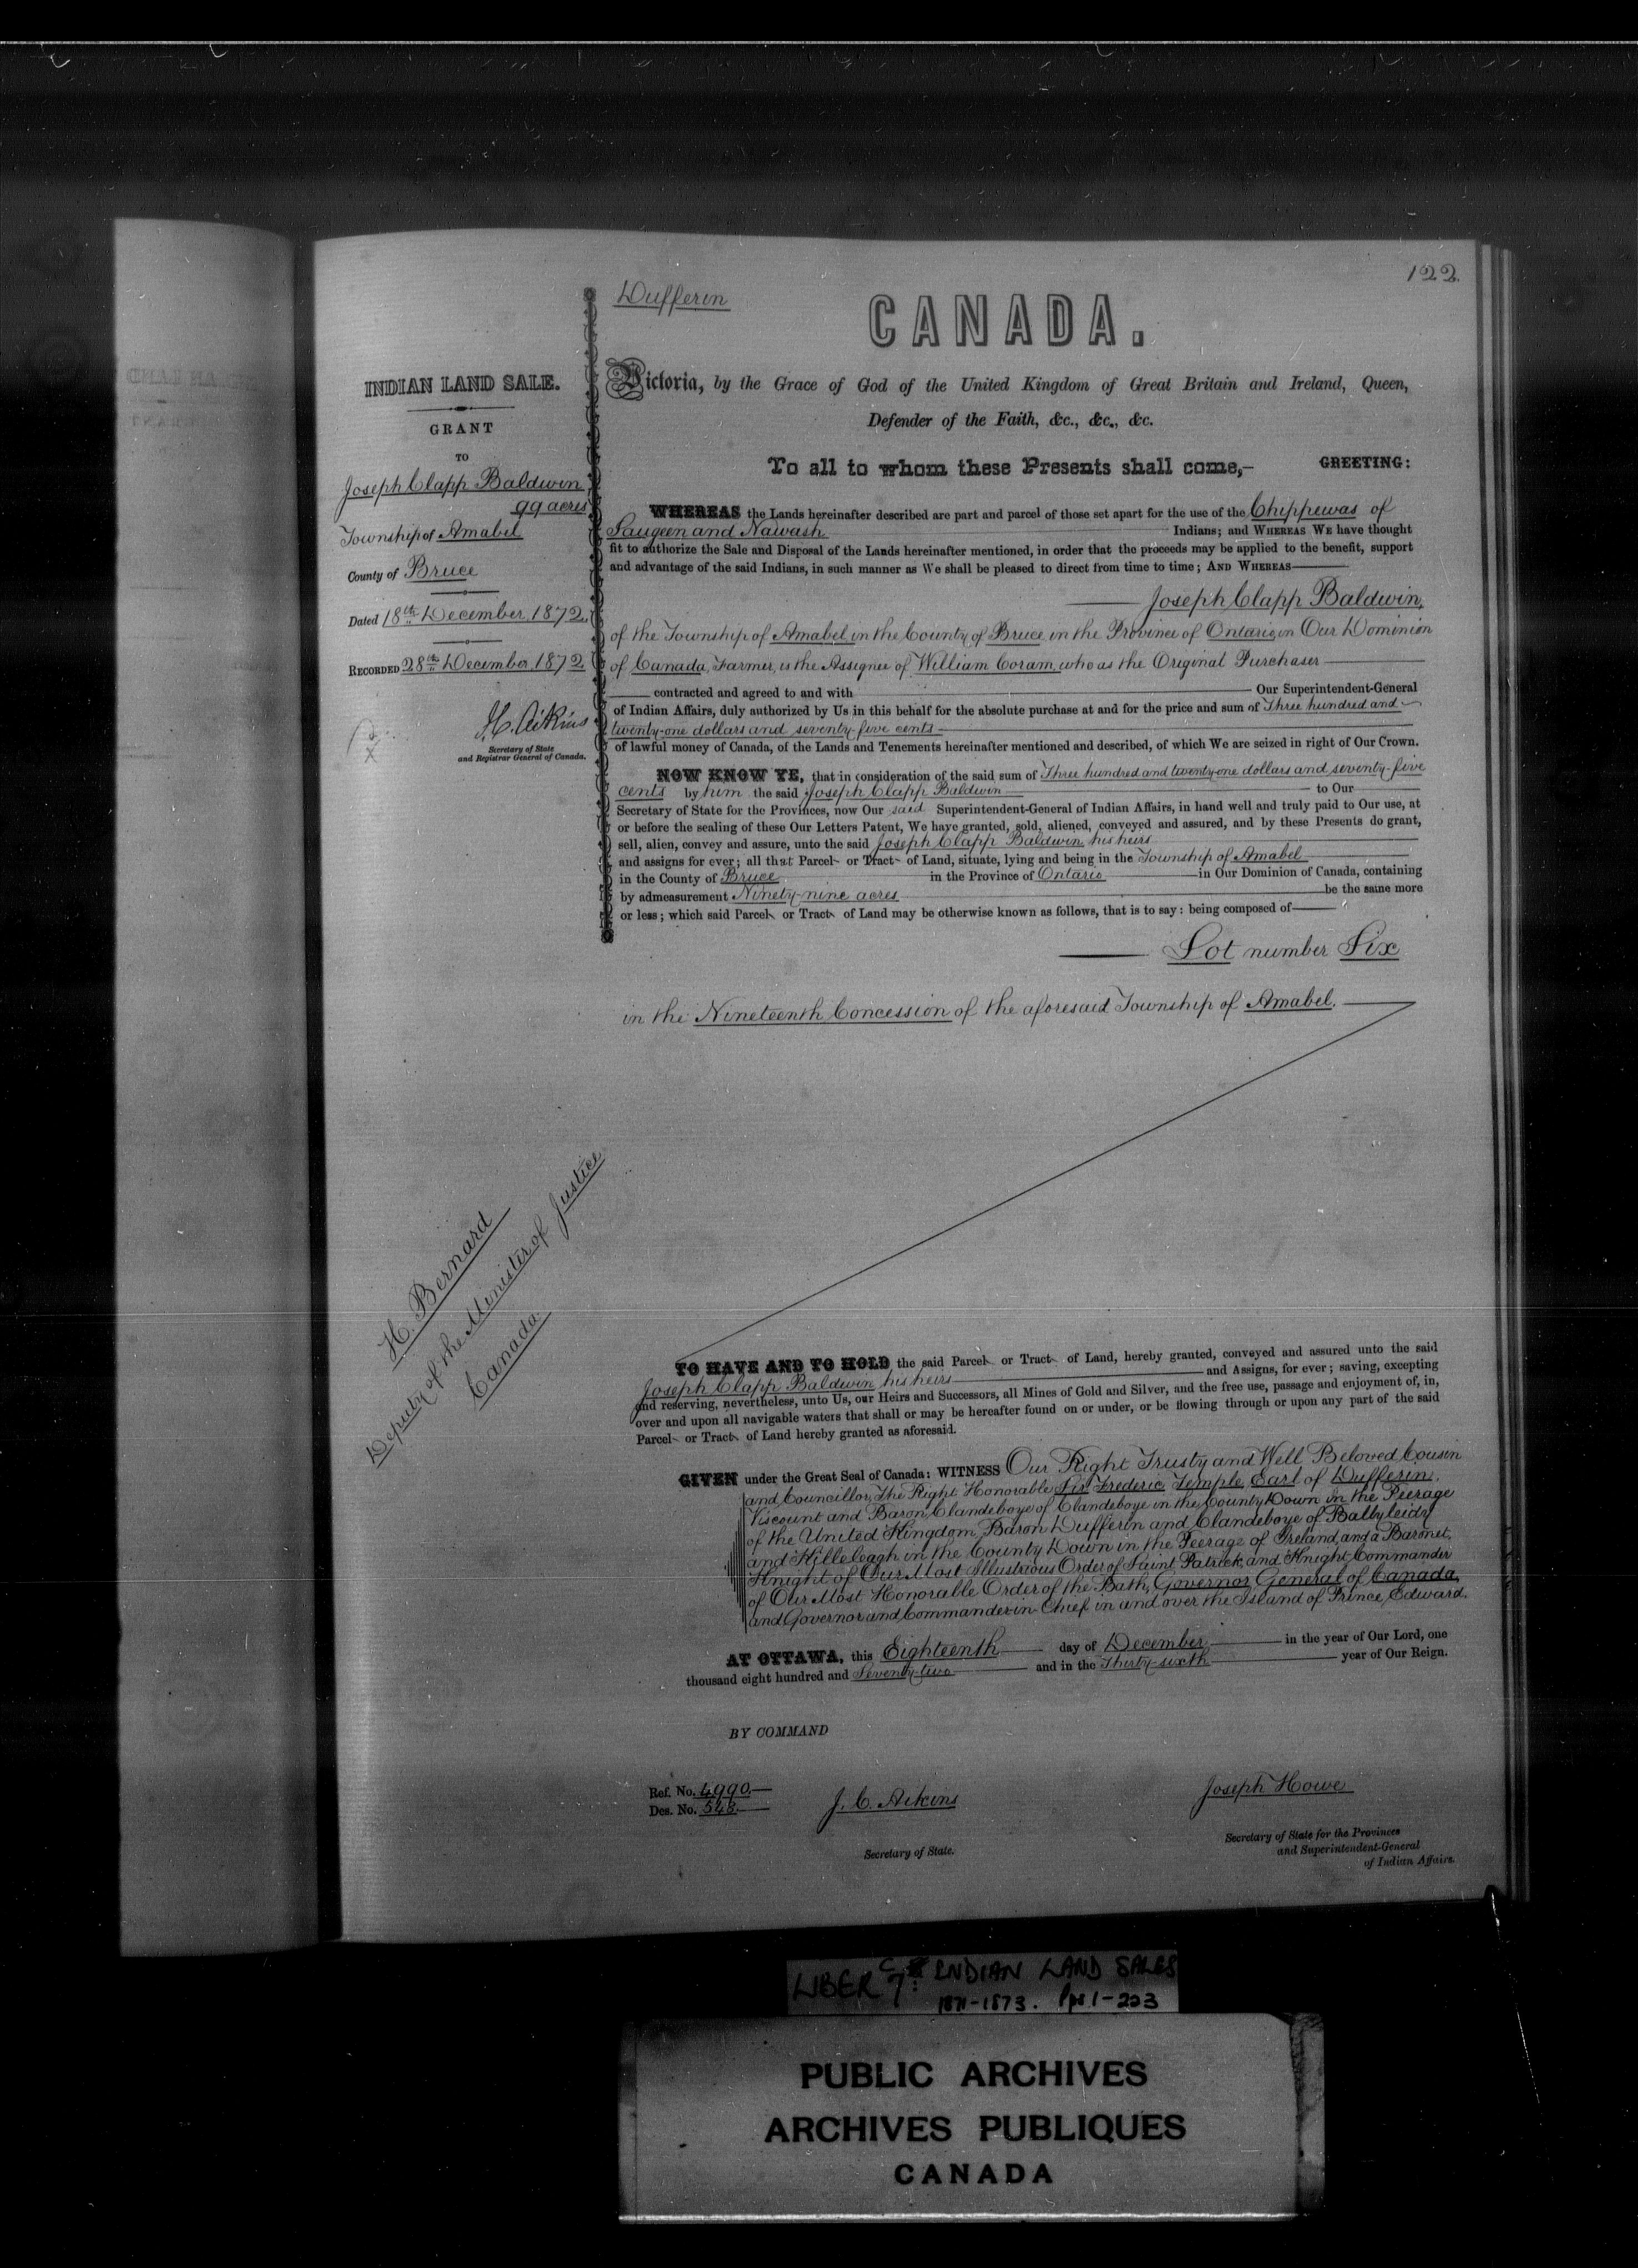 122.
Dufferin
CANADA.
INDIAN LAND SALE.
GRANT
TO
Joseph Clapp Baldwin
99 acres
Township of Amabel
County of Bruce
Dated 18th December, 1872.
RECORDED 28th December, 1872.
J.C. Aikins
Secretary of State
and Registrar General of Canada.
Victoria, by the Grace of God of the United Kingdom of Great Britain and Ireland, Queen,
Defender of the Faith, &c., &c., &c.
To all to whom these Presents shall come,— GREETING:
WHEREAS the Lands hereinafter described are part and parcel of those set apart for the use of the Chippewas of
Saugeen and Nawash Indians; and WHEREAS We have thought
fit to authorize the Sale and Disposal of the Lands hereinafter mentioned, in order that the proceeds may be applied to the benefit, support
and advantage of the said Indians, in such manner as We shall be pleased to direct from time to time; AND WHEREAS
Joseph Clapp Baldwin,
of the Township of Amabel in the County of Bruce in the Province of Ontario, in Our Dominion
of Canada, Farmer, is the Assignee of William Coram, who as the Original Purchaser
contracted and agreed to and with Our Superintendent-General
of Indian Affairs, duly authorized by Us in this behalf for the absolute purchase at and for the price and sum of Three hundred and
twenty-one dollars and seventy-five cents
of lawful money of Canada, of the Lands and Tenements hereinafter mentioned and described, of which We are seized in right of Our Crown.
NOW KNOW YE, that in consideration of the said sum of Three hundred and twenty-one dollars and seventy-five
cents by him the said Joseph Clapp Baldwin to Our
Secretary of State for the Provinces, now Our said Superintendent-General of Indian Affairs, in hand well and truly paid to Our use, at
or before the sealing of these Our Letters Patent, We have granted, sold, aliened, conveyed and assured, and by these Presents do grant,
sell, alien, convey and assure, unto the said Joseph Clapp Baldwin, his heirs
and assigns for ever; all that Parcel or Tract of Land, situate, lying and being in the Township of Amabel
in the County of Bruce in the Province of Ontario in Our Dominion of Canada, containing
by admeasurement Ninety-nine acres be the same more
or less; which said Parcel or Tract of Land may be otherwise known as follows, that is to say: being composed of
Lot number Six
in the Nineteenth Concession of the aforesaid Township of Amabel.
H. Bernard
Deputy of the Minister of Justice
Canada.
TO HAVE AND TO HOLD the said Parcel or Tract of Land, hereby granted, conveyed and assured unto the said
Joseph Clapp Baldwin, his heirs and Assigns, for ever; saving, excepting
and reserving, nevertheless, unto Us, our Heirs and Successors, all Mines of Gold and Silver, and the free use, passage and enjoyment of, in,
over and upon all navigable waters that shall or may be hereafter found on or under, or be flowing through or upon any part of the said
Parcel or Tract of Land hereby granted as aforesaid.
GIVEN under the Great Seal of Canada: WITNESS Our Right Trusty and Well Beloved Cousin
and Councillor, The Right Honorable Sir Frederic Temple, Earl of Dufferin,
Viscount and Baron Clandeboye of Clandeboye in the County Down in the Peerage
of the United Kingdom, Baron Dufferin and Clandeboye of Ballyleidy
and Killeleagh in the County Down in the Peerage of Ireland, and a Baronet,
Knight of Our Most Illustrious Order of Saint Patrick, and Knight Commander
of Our Most Honorable Order of the Bath, Governor General of Canada,
and Governor and Commander-in-Chief in and over the Island of Prince Edward.
AT OTTAWA, this Eighteenth day of December in the year of Our Lord, one
thousand eight hundred and Seventy-two and in the Thirty-sixth year of Our Reign.
BY COMMAND
Ref. No. 4990.
Des. No. 548.
J. C. Aikins
Secretary of State.
Joseph Howe
Secretary of State for the Provinces
and Superintendent-General
of Indian Affairs.
LIBER C 7: INDIAN LAND SALES
1871-1873. Pgs. 1-223
PUBLIC ARCHIVES
ARCHIVES PUBLIQUES
CANADA